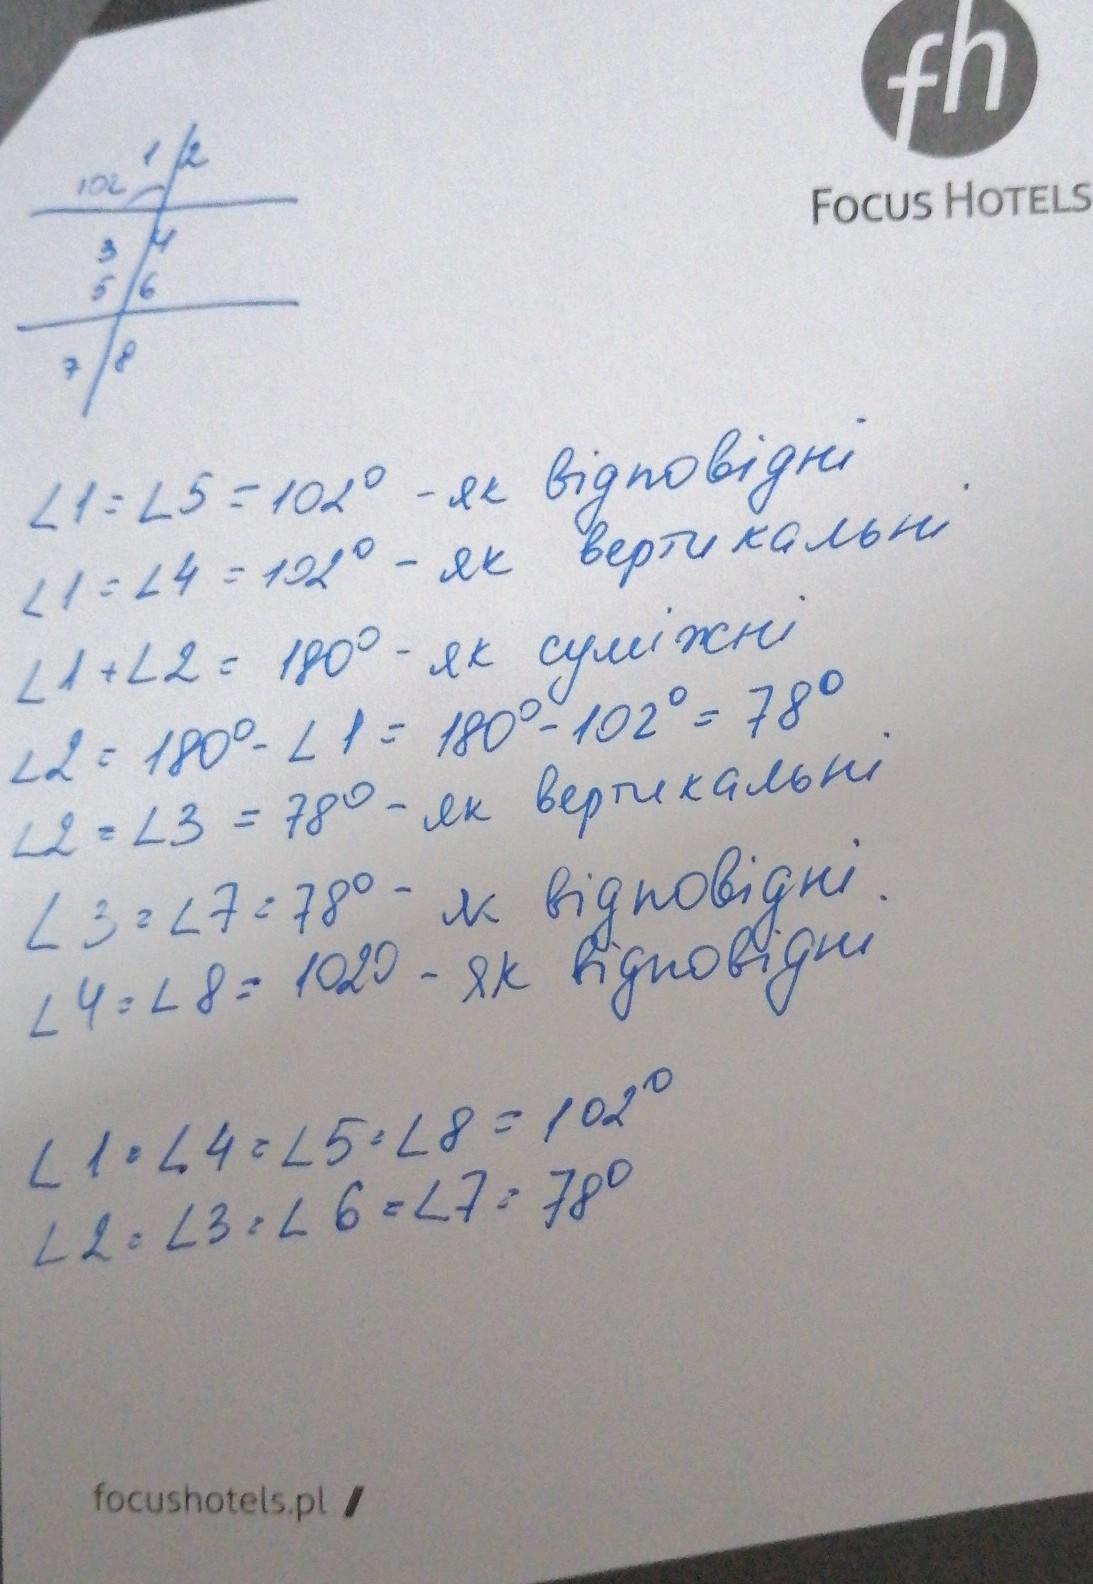 fh
FOCUS HOTELS
1 2
102
3 4
5 6
7 8
∠1=∠5=102° - як відповідні
∠1=∠4=102° - як вертикальні
∠1+∠2= 180° - як суміжні
∠2= 180°-∠1= 180°-102°= 78°
∠2=∠3=78° - як вертикальні
∠3=∠7=78° - як відповідні.
∠4=∠8=102° - як відповідні
∠1=∠4=∠5=∠8=102°
∠2=∠3=∠6=∠7=78°
focushotels.pl /